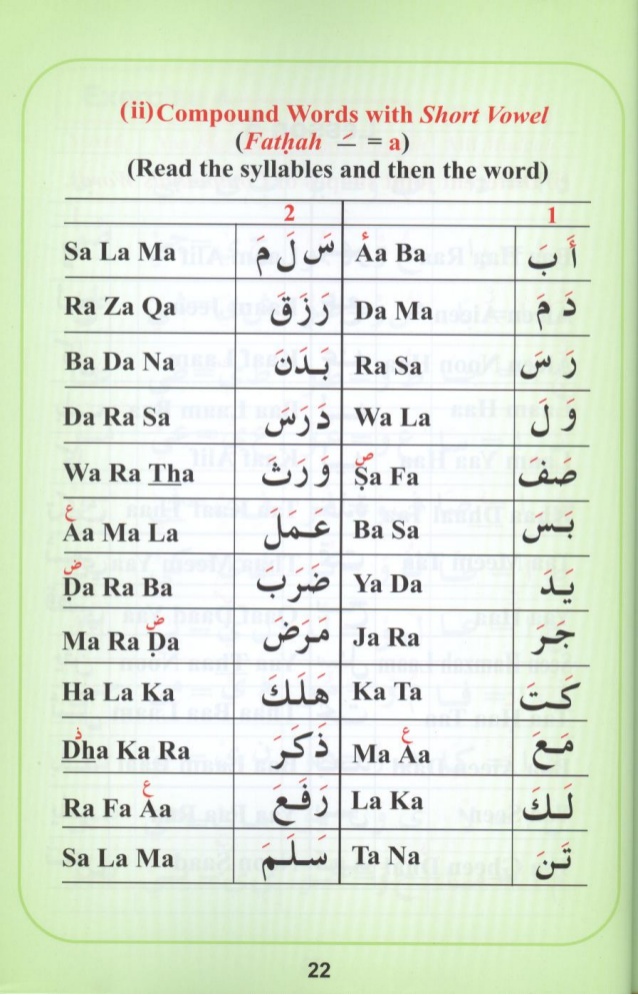 (ii)Compound Words with Short Vowel
(Fatḥah ـَ = a)
(Read the syllables and then the word)
2 1
Sa La Ma سَ لَ مَ Áa Ba أَ بَ
Ra Za Qa رَ زَ قَ Da Ma دَ مَ
Ba Da Na بَـدَنَ Ra Sa رَ سَ
Da Ra Sa دَرَسَ Wa La وَ لَ
Wa Ra Tha وَرَثَ Ṣa Fa صَفَ
Áa Ma La عَمَلَ Ba Sa بَـسَ
Ḍa Ra Ba ضَرَبَ Ya Da يَـدَ
Ma Ra Ḍa مَـرَضَ Ja Ra جَـرَ
Ha La Ka هَلَكَ Ka Ta كَـتَ
Dha Ka Ra ذَكَرَ Ma Áa مَـعَ
Ra Fa Áa رَفَعَ La Ka لَـكَ
Sa La Ma سَلَـمَ Ta Na تَـنَ
22